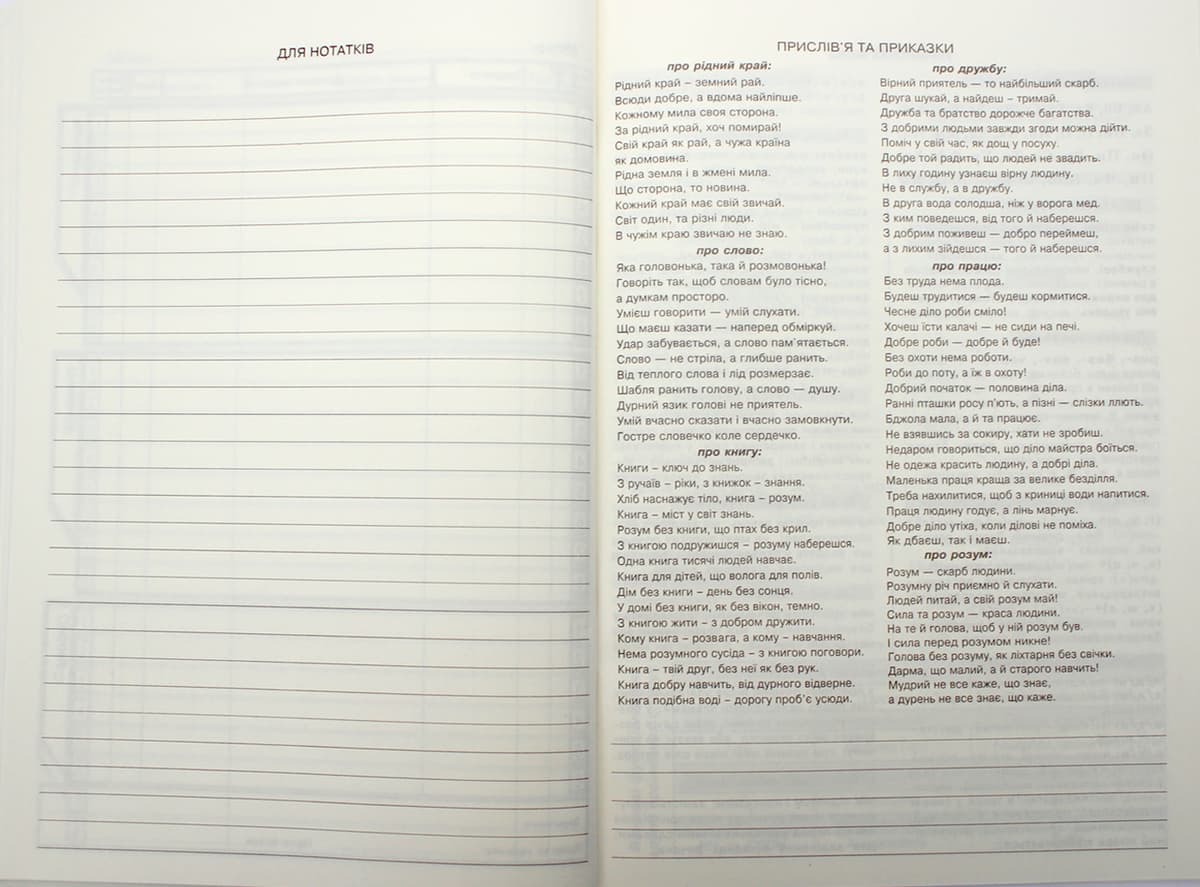 ДЛЯ НОТАТКІВ
ПРИСЛІВ'Я ТА ПРИКАЗКИ
про рідний край:
Рідний край – земний рай.
Всюди добре, а вдома найліпше.
Кожному мила своя сторона.
За рідний край, хоч помирай!
Свій край як рай, а чужа країна
як домовина.
Рідна земля і в жмені мила.
Що сторона, то новина.
Кожний край має свій звичай.
Світ один, та різні люди.
В чужім краю звичаю не знаю.
про слово:
Яка головонька, така й розмовонька!
Говоріть так, щоб словам було тісно,
а думкам просторо.
Умієш говорити — умій слухати.
Що маєш казати — наперед обміркуй.
Удар забувається, а слово пам'ятається.
Слово — не стріла, а глибше ранить.
Від теплого слова і лід розмерзає.
Шабля ранить голову, а слово — душу.
Дурний язик голові не приятель.
Умій вчасно сказати і вчасно замовкнути.
Гостре словечко коле сердечко.
про книгу:
Книги – ключ до знань.
З ручаїв – ріки, з книжок – знання.
Хліб наснажує тіло, книга – розум.
Книга – міст у світ знань.
Розум без книги, що птах без крил.
З книгою подружишся – розуму наберешся.
Одна книга тисячі людей навчає.
Книга для дітей, що волога для полів.
Дім без книги – день без сонця.
У домі без книги, як без вікон, темно.
З книгою жити – з добром дружити.
Кому книга – розвага, а кому – навчання.
Нема розумного сусіда – з книгою поговори.
Книга – твій друг, без неї як без рук.
Книга добру навчить, від дурного відверне.
Книга подібна воді – дорогу проб'є усюди.
про дружбу:
Вірний приятель — то найбільший скарб.
Друга шукай, а найдеш – тримай.
Дружба та братство дорожче багатства.
З добрими людьми завжди згоди можна дійти.
Поміч у свій час, як дощ у посуху.
Добре той радить, що людей не звадить.
В лиху годину узнаєш вірну людину.
Не в службу, а в дружбу.
В друга вода солодша, ніж у ворога мед.
З ким поведешся, від того й наберешся.
З добрим поживеш — добро переймеш,
а з лихим зійдешся — того й наберешся.
про працю:
Без труда нема плода.
Будеш трудитися — будеш кормитися.
Чесне діло роби сміло!
Хочеш їсти калачі — не сиди на печі.
Добре роби — добре й буде!
Без охоти нема роботи.
Роби до поту, а їж в охоту!
Добрий початок — половина діла.
Ранні пташки росу п'ють, а пізні — слізки ллють.
Бджола мала, а й та працює.
Не взявшись за сокиру, хати не зробиш.
Недаром говориться, що діло майстра боїться.
Не одежа красить людину, а добрі діла.
Маленька праця краща за велике безділля.
Треба нахилитися, щоб з криниці води напитися.
Праця людину годує, а лінь марнує.
Добре діло утіха, коли ділові не поміха.
Як дбаєш, так і маєш.
про розум:
Розум — скарб людини.
Розумну річ приємно й слухати.
Людей питай, а свій розум май!
Сила та розум — краса людини.
На те й голова, щоб у ній розум був.
І сила перед розумом никне!
Голова без розуму, як ліхтарня без свічки.
Дарма, що малий, а й старого навчить!
Мудрий не все каже, що знає,
а дурень не все знає, що каже.